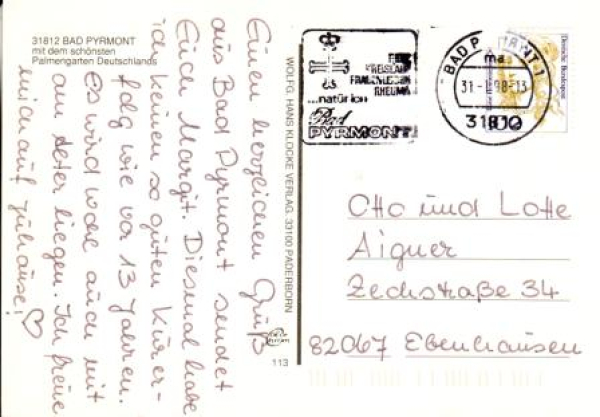 31812 BAD PYRMONT
mit dem schönsten
Palmengarten Deutschlands
Einen herzlichen Gruß
aus Bad Pyrmont sendet
Euch Margit. Diesmal habe
ich keinen so guten Kurer-
folg wie vor 13 Jahren.
Es wird wohl auch mit
am Alter liegen. Ich freue
mich auf zuhause! ♡
WOLFG. HANS KLOCKE VERLAG, 33100 PADERBORN
113
HERZ
KREISLAUF
FRAUENLEIDEN
RHEUMA
...natürlich
Bad
PYRMONT
BAD PYRMONT 1
ma
31810
Deutsche Bundespost
Otto und Lotte
Aigner
Zechstraße 34
82067 Ebenhausen